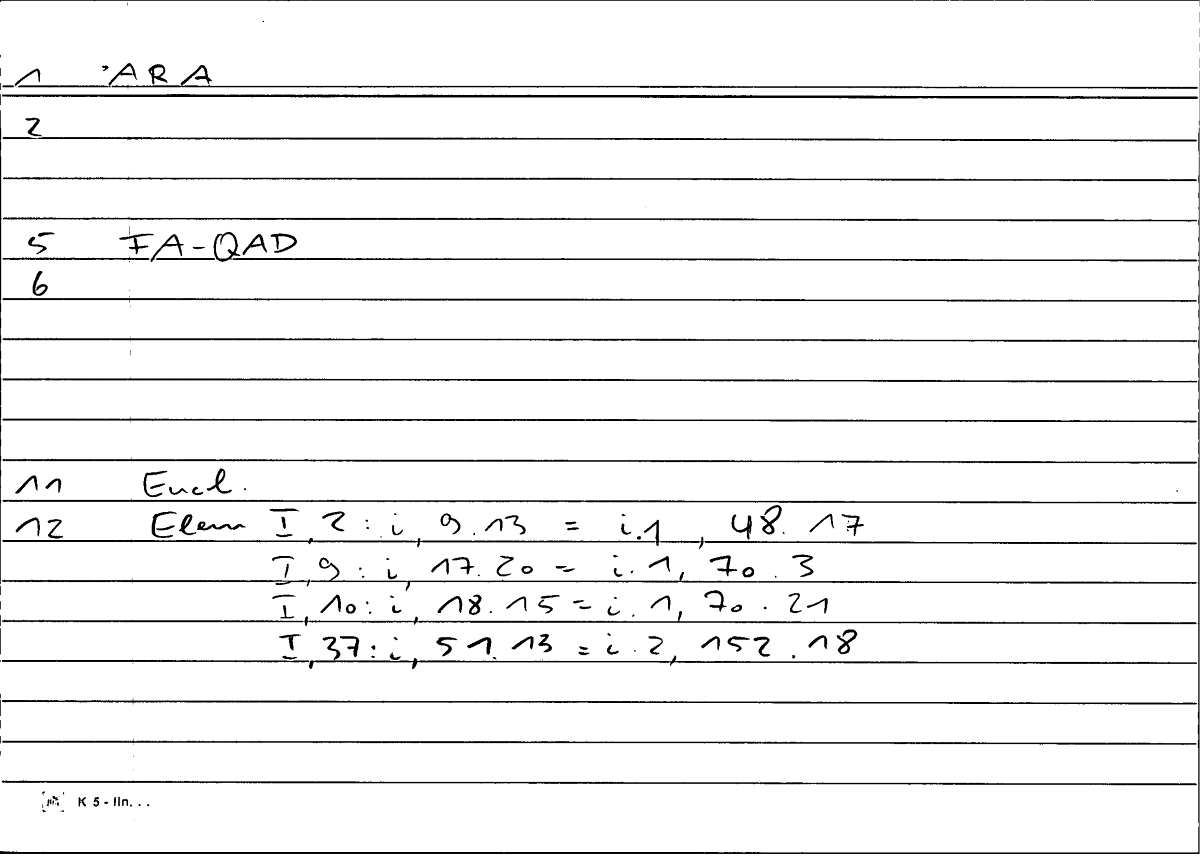 1 ʾARA
2
5 FA-QAD
6
11 Eucl.
12 Elem I, 2 : i, 9.13 = i.1, 48.17
I, 9 : i, 17.20 = i.1, 70.3
I, 10 : i, 18.15 = i.1, 70.21
I, 37 : i, 51.13 = i.2, 152.18
K 5 - lin. . .